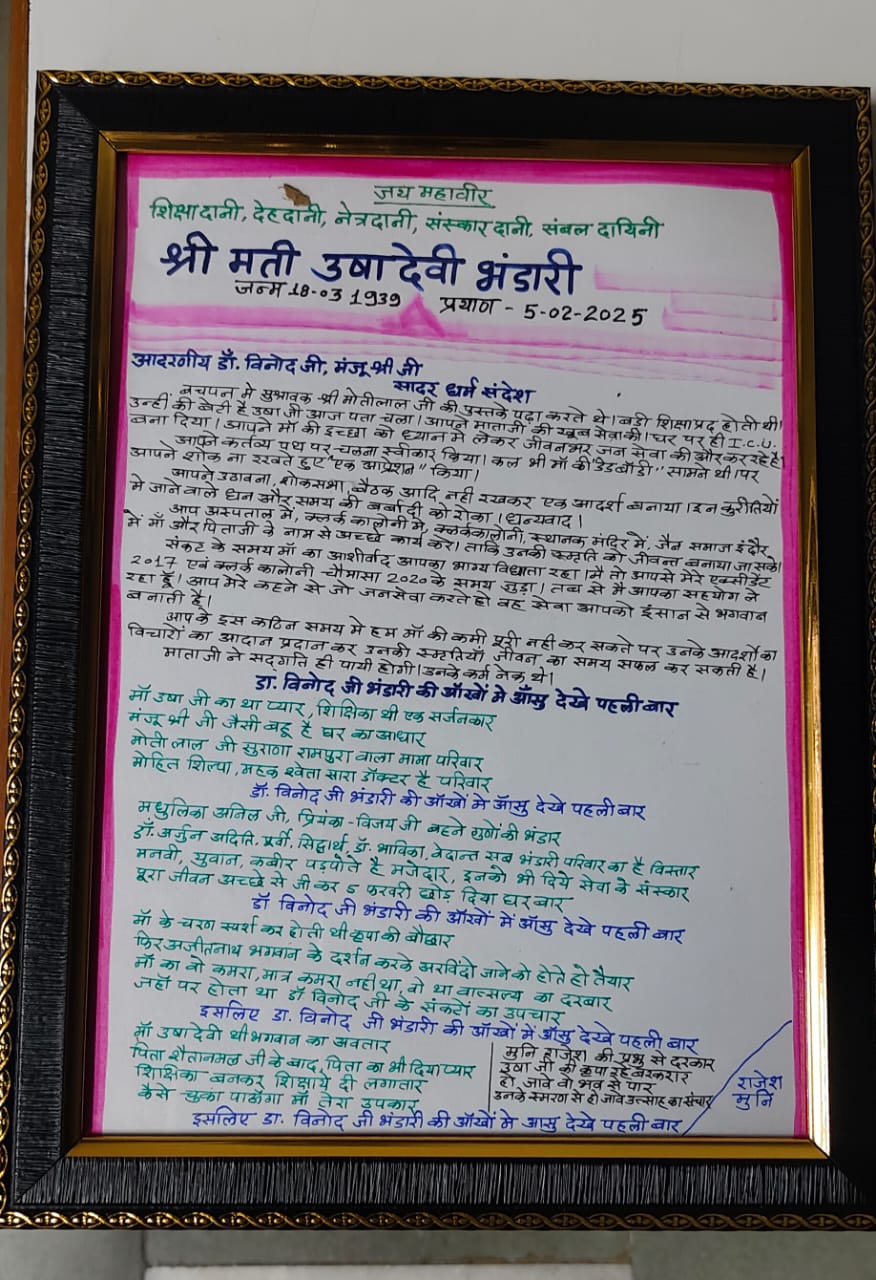 जय महावीर
शिक्षादानी, देहदानी, नेत्रदानी, संस्कारदानी, संबल दायिनी
श्री मती उषादेवी भंडारी
जन्म 18-03 1939 प्रयाण - 5-02-2025
आदरणीय डॉ. विनोद जी, मंजूश्री जी
सादर धर्म संदेश
बचपन मे सुश्रावक श्री मोतीलाल जी की पुस्तके पढ़ा करते थे। बड़ी शिक्षाप्रद होती थी।
उन्हीं की बेटी है उषा जी आज पता चला। आपने माताजी की खूब सेवा की। घर पर ही I.C.U.
बना दिया। आपने माँ की इच्छा को ध्यान मे लेकर जीवनभर जन सेवा की और कर रहे है।
आपने कर्तव्य पथ पर चलना स्वीकार किया। कल भी माँ की "डेडबॉडी" सामने थी। पर
आपने शोक ना रखते हुए "एक आप्रेशन" किया।
आपने उठावना, शोकसभा, बैठक आदि नही रखकर एक आदर्श बनाया। इन कुरीतियों
मे जाने वाले धन और समय की बर्बादी को रोका। धन्यवाद।
आप अस्पताल में, क्लर्क कालोनी मे, क्लर्ककालोनी, स्थानक मंदिर में, जैन समाज इंदौर
में माँ और पिताजी के नाम से अच्छे कार्य करे। ताकि उनकी स्मृति को जीवन्त बनाया जा सके।
संकट के समय माँ का आशीर्वाद आपका भाग्य विधाता रहा। मै तो आपसे मेरे एक्सीडेंट
2017 एवं क्लर्क कालोनी चौमासा 2020 के समय जुड़ा। तब से मै आपका सहयोग ले
रहा हूँ। आप मेरे कहने से जो जनसेवा करते हो वह सेवा आपको इंसान से भगवान
बनाती है।
आप के इस कठिन समय मे हम माँ की कमी पूरी नही कर सकते पर उनके आदर्शो का
विचारों का आदान प्रदान कर उनकी स्मृतियाँ, जीवन का समय सफल कर सकती है।
माताजी ने सद्गति ही पायी होगी। उनके कर्म नेक थे।
डा. विनोद जी भंडारी की आँखों मे आँसु देखे पहली बार
माँ उषा जी का था प्यार, शिक्षिका थी एक सर्जनकार
मंजू श्री जी जैसी बहू है घर का आधार
मोती लाल जी सुराणा रामपुरा वाला मामा परिवार
मोहित शिल्पा, महक श्वेता सारा डॉक्टर है परिवार
डॉ. विनोद जी भंडारी की आँखों मे आँसु देखे पहली बार
मधुलिका अनिल जी, प्रियंका-विजय जी बहने गुणों की भंडार
डॉ. अर्जुन अदिति, पूर्वी, सिद्धार्थ, डॉ. भाविका, वेदान्त सब भंडारी परिवार का है विस्तार
मनवी, सुवान, कबीर पड़पोते है मजेदार, इनको भी दिये सेवा के संस्कार
पूरा जीवन अच्छे से जी कर 5 फरवरी छोड़ दिया घर बार
डॉ विनोद जी भंडारी की आँखों में आँसु देखे पहली बार
माँ के चरण स्पर्श कर होती थी कृपा की बौछार
फिर अजीतनाथ भगवान के दर्शन करके अरविंदो जाने को होते हो तैयार
माँ का वो कमरा, मात्र कमरा नही था, वो था वात्सल्य का दरबार
जहाँ पर होता था डॉ विनोद जी के संकटों का उपचार
इसलिए डा. विनोद जी भंडारी की आँखों में आँसु देखे पहली बार
माँ उषादेवी थी भगवान का अवतार
पिता शैतानमल जी के बाद, पिता का भी दिया प्यार
शिक्षिका बनकर शिक्षाये दी लगातार
कैसे चुका पाऊँगा माँ तेरा उपकार
मुनि राजेश की प्रभु से दरकार
उषा जी की कृपा रहे बरकरार
हो जावे वो भव से पार
उनके स्मरण से हो जावे उत्साह का संचार
राजेश
मुनि
इसलिए डा. विनोद जी भंडारी की आँखों मे आसु देखे पहली बार